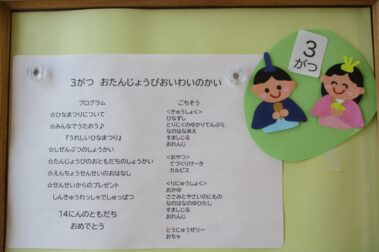 3がつ おたんじょうびおいわいのかい
プログラム
☆ひなまつりについて
☆みんなでうたおう♪
『うれしいひなまつり』
☆しぜんぶつのしょうかい
☆たんじょうびのおともだちのしょうかい
☆えんちょうせんせいのおはなし
☆せんせいからのプレゼント
しんきゅうれっしゃでしゅっぱつ
14にんのともだち
おめでとう
ごちそう
<きゅうしょく>
ひなずし
とりにくのゆかりてんぷら
なのはなあえ
すましじる
おれんじ
<おやつ>
てづくりけーき
カルピス
<りにゅうしょく>
おかゆ
ささみとやさいのにもの
なのはなのゆびたし
すましじる
おれんじ
とうにゅうぜりー
おちゃ
3
がつ